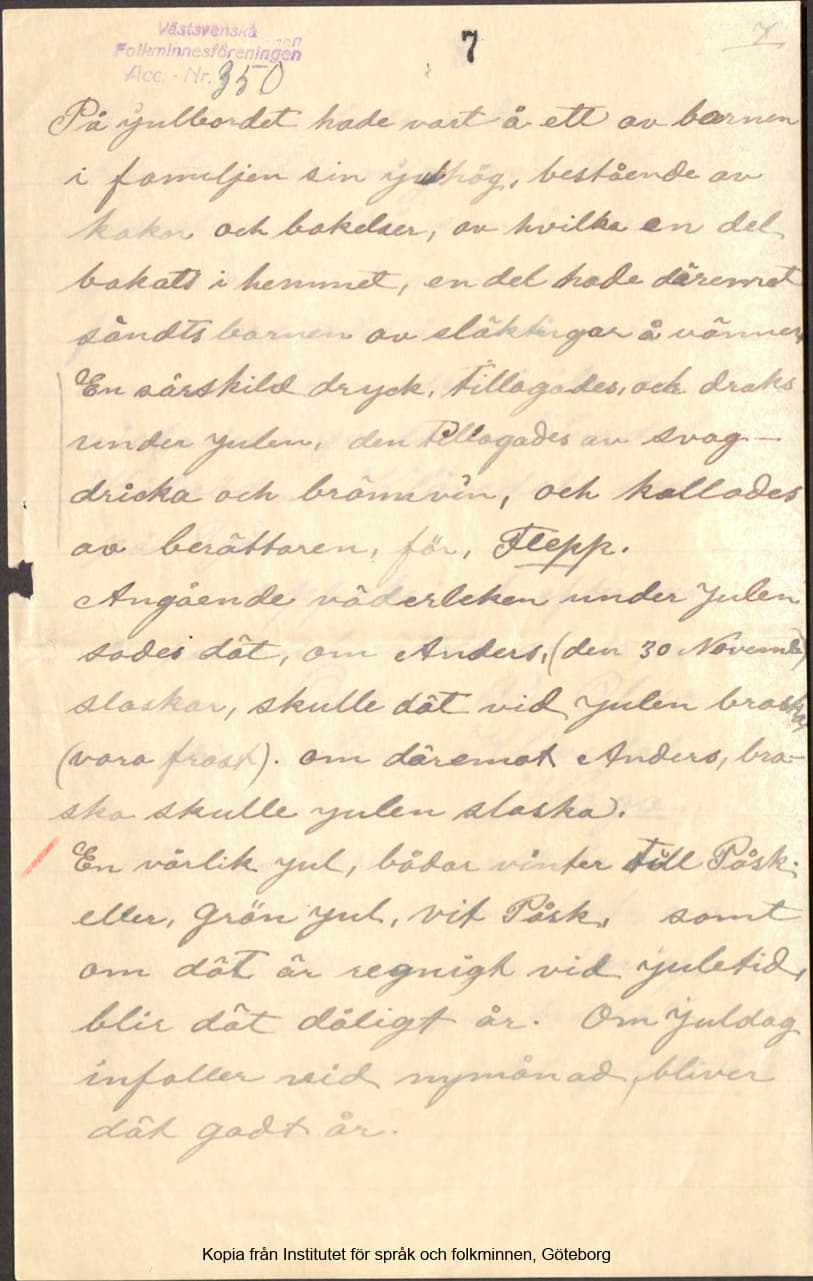 Västsvenska
Folkminnesföreningen
Acc. - Nr. 350
7
7
På julbordet hade vart å ett av barnen
i familjen sin julhög, bestående av
kakor och bakelser, av hvilka en del
bakats i hemmet, en del hade däremot
sändts barnen av släktingar å vänner.
En särskild dryck, tillagades, och draks
under julen, den tillagades av svag-
dricka och brännvin, och kallades
av berättaren, för, Flepp.
Angående väderleken under Julen
sades dät, om Anders, (den 30 Novemb)
slaskar, skulle dät vid Julen braska
(vara frost). om däremot Anders, bra-
ska skulle julen slaska.
En vårlik jul, bådar vinter till Påsk.
eller, Grön jul, vit Påsk, samt
om dät är regnigt vid juletid,
blir dät dåligt år. Om Juldag
infaller vid nymånad, bliver
dät godt år.
Kopia från Institutet för språk och folkminnen, Göteborg